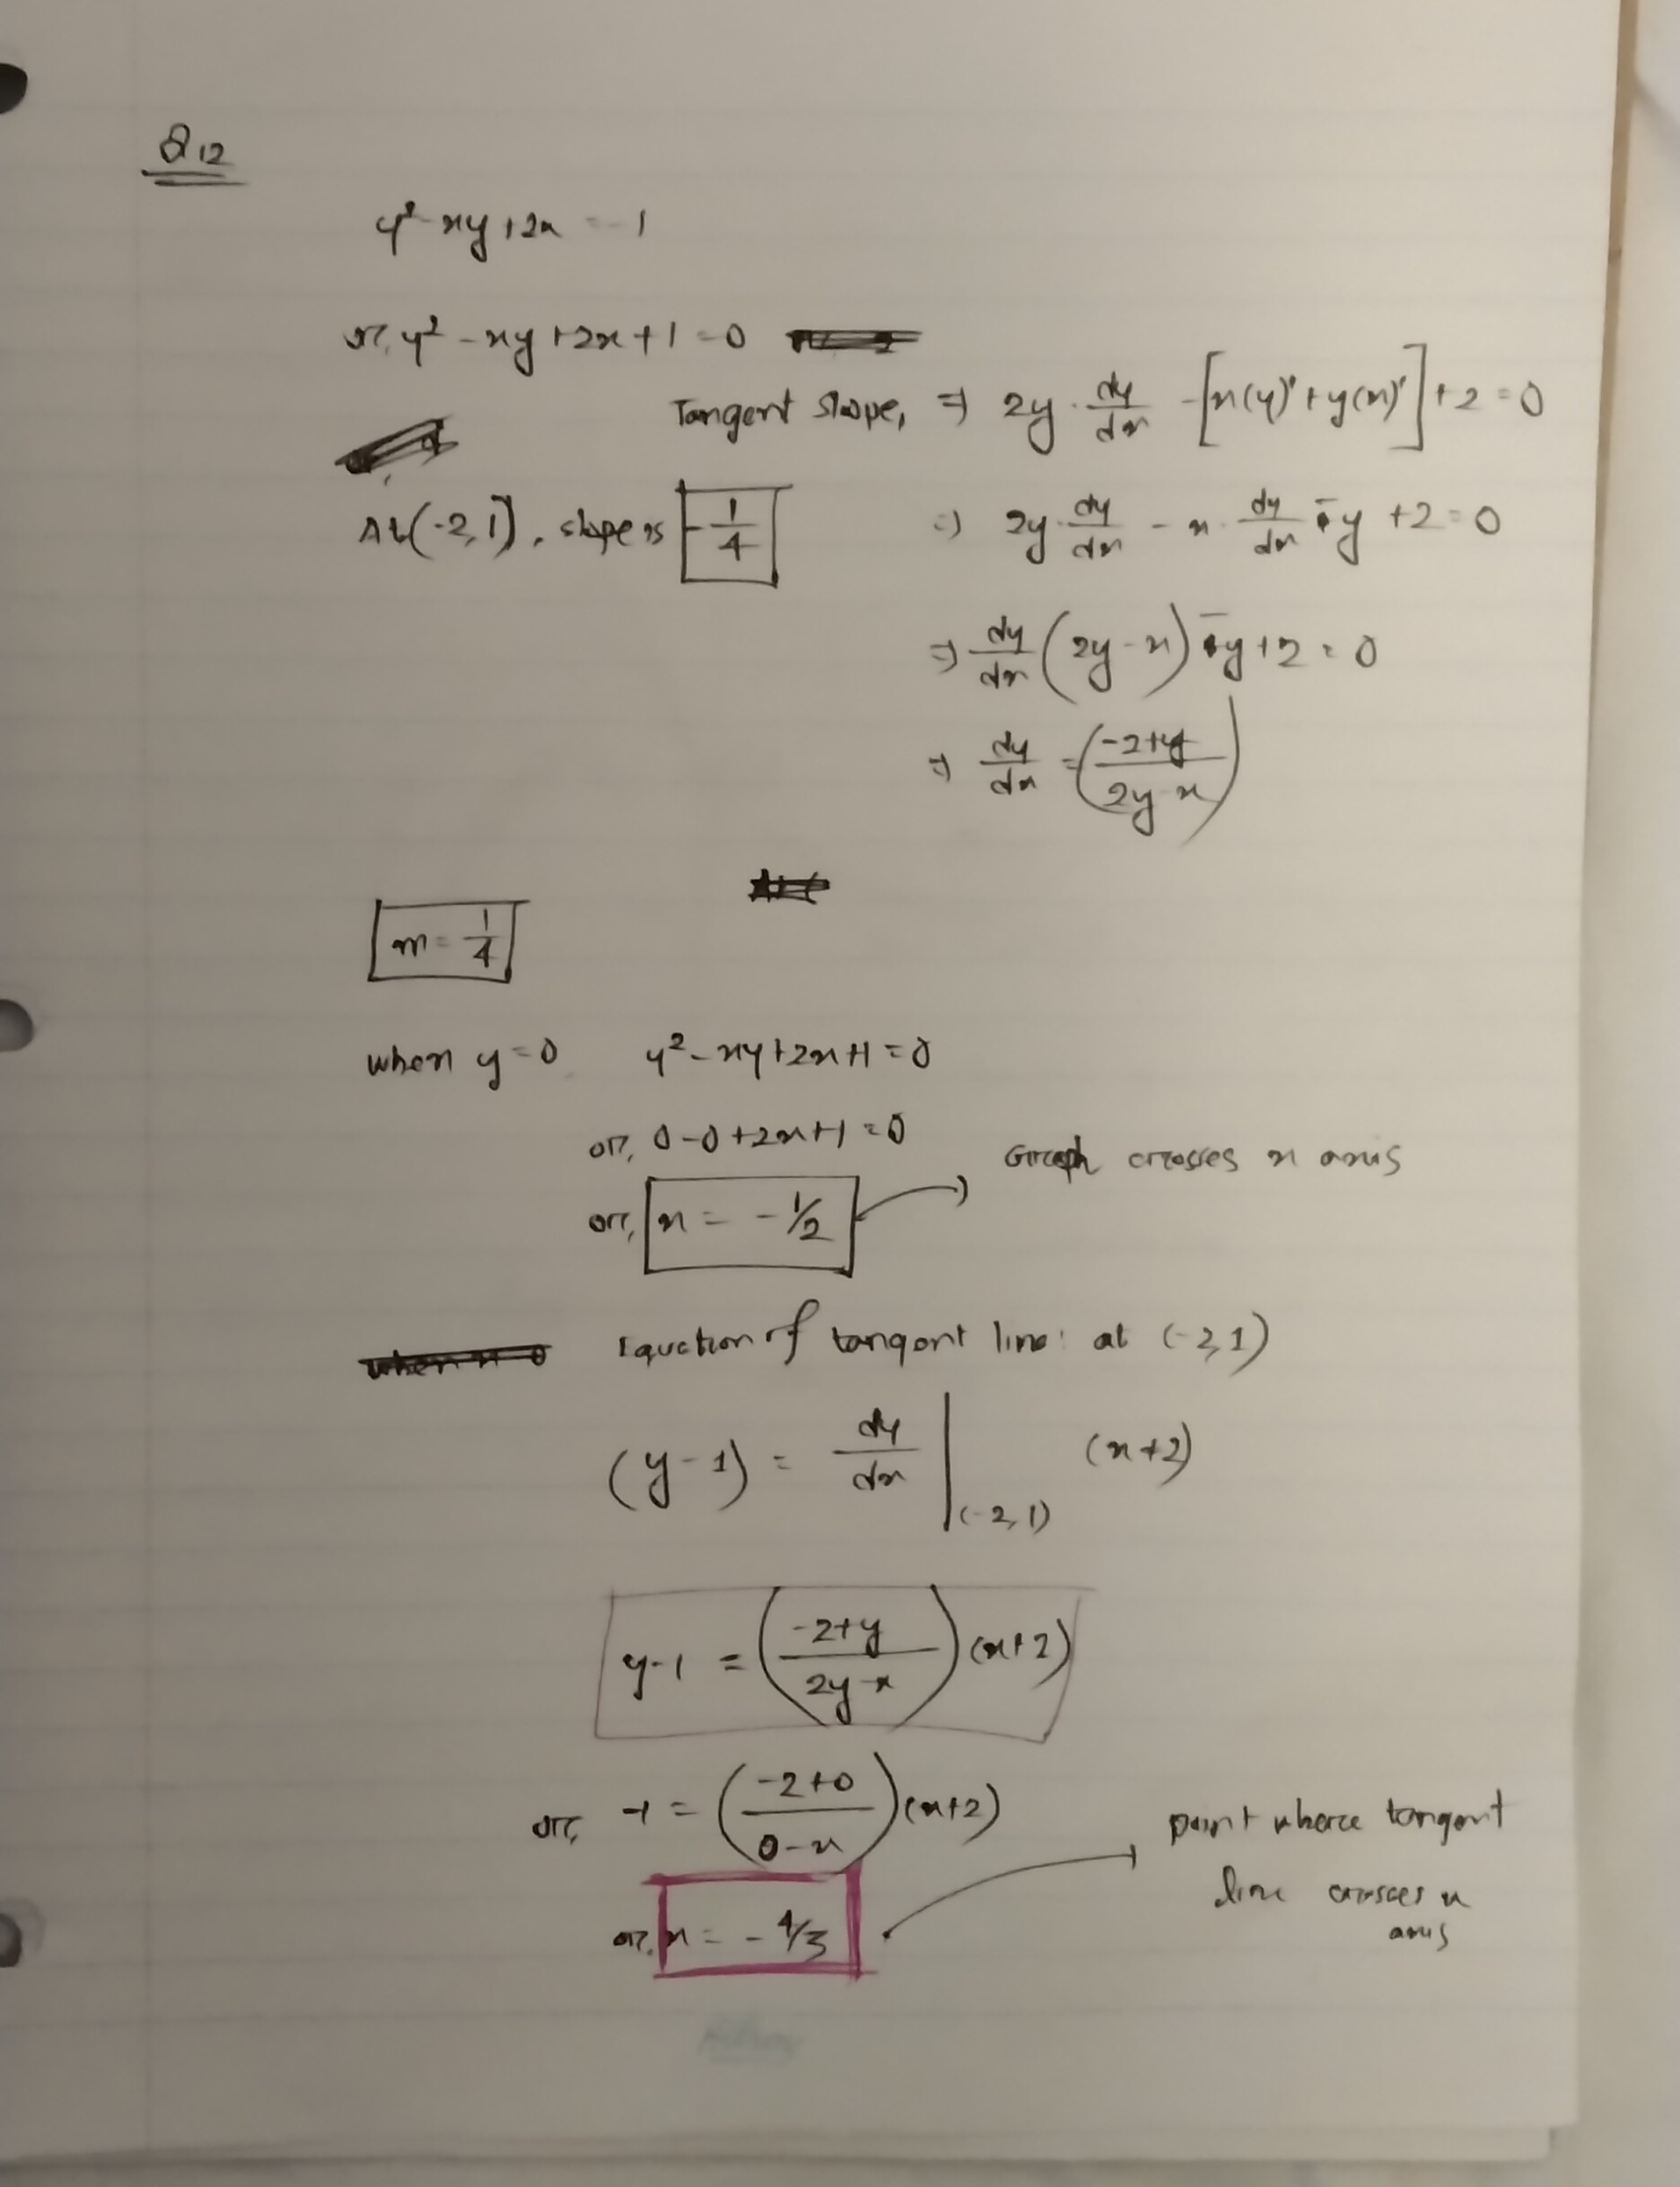 Q12
y² - xy + 2x = -1
or, y² - xy + 2x + 1 = 0
Tangent slope, ⇒ 2y · dy/dx - [x(y)' + y(x)'] + 2 = 0
At (-2, 1), slope is -1/4
⇒ 2y · dy/dx - x · dy/dx - y + 2 = 0
⇒ dy/dx (2y - x) - y + 2 = 0
⇒ dy/dx = (-2+y / 2y - x)
m = 1/4
when y = 0 y² - xy + 2x + 1 = 0
or, 0 - 0 + 2x + 1 = 0
Graph crosses x axis
or, x = - 1/2
Equation of tangent line: at (-2, 1)
(y - 1) = dy/dx |(-2, 1) (x + 2)
y - 1 = (-2+y / 2y - x) (x + 2)
or, -1 = (-2+0 / 0 - x) (x + 2)
point where tangent
line crosses x
axis
or, x = - 4/3